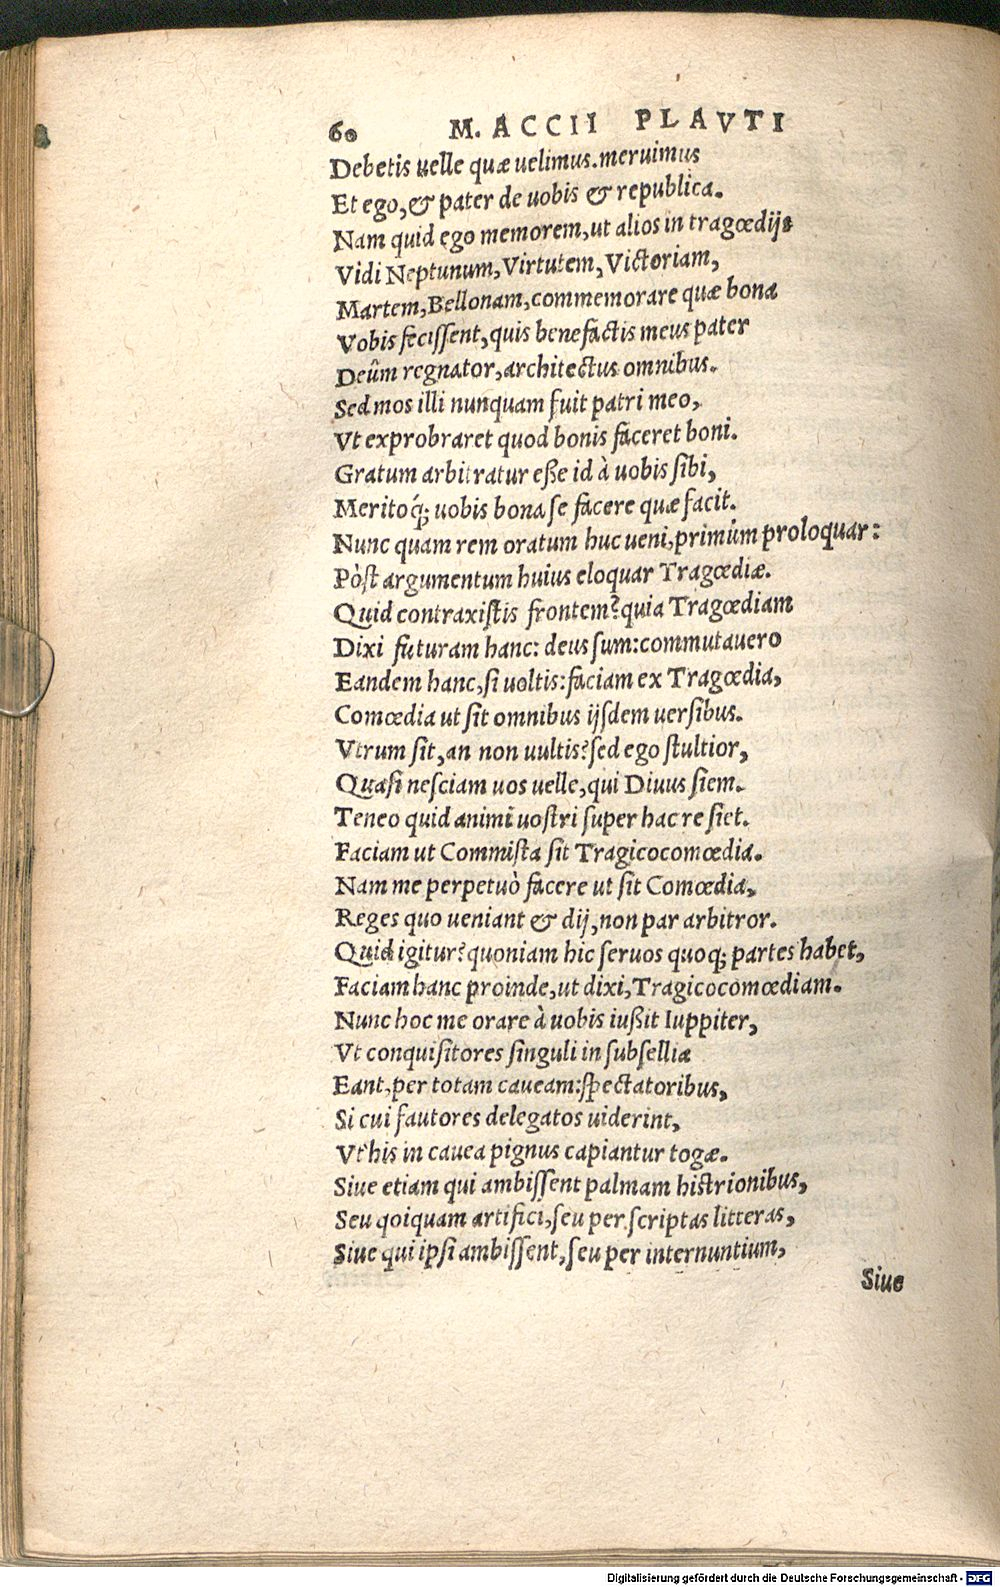 60 M. ACCII PLAVTI
Debetis uelle quæ uelimus. meruimus
Et ego, & pater de uobis & republica.
Nam quid ego memorem, ut alios in tragœdijs
Vidi Neptunum, Virtutem, Victoriam,
Martem, Bellonam, commemorare quæ bona
Vobis fecissent, quis benefactis meus pater
Deûm regnator, architectus omnibus.
Sed mos illi nunquam fuit patri meo,
Vt exprobraret quod bonis faceret boni.
Gratum arbitratur eße id à uobis sibi,
Meritoq́; uobis bona se facere quæ facit.
Nunc quam rem oratum huc ueni, primùm proloquar:
Pòst argumentum huius eloquar Tragœdiæ.
Quid contraxistis frontem? quia Tragœdiam
Dixi futuram hanc: deus sum: commutauero
Eandem hanc, si uoltis: faciam ex Tragœdia,
Comœdia ut sit omnibus ijsdem uersibus.
Vtrum sit, an non uultis? sed ego stultior,
Quasi nesciam uos uelle, qui Diuus siem.
Teneo quid animi uostri super hac re siet.
Faciam ut Commista sit Tragicocomœdia.
Nam me perpetuò facere ut sit Comœdia,
Reges quo ueniant & dij, non par arbitror.
Quid igitur? quoniam hic seruos quoq; partes habet,
Faciam hanc proinde, ut dixi, Tragicocomœdiam.
Nunc hoc me orare à uobis iußit Iuppiter,
Vt conquisitores singuli in subsellia
Eant, per totam caueam: spectatoribus,
Si cui fautores delegatos uiderint,
Vt his in cauea pignus capiantur togæ.
Siue etiam qui ambissent palmam histrionibus,
Seu qoiquam artifici, seu per scriptas litteras,
Siue qui ipsi ambissent, seu per internuntium,
Siue
Digitalisierung gefördert durch die Deutsche Forschungsgemeinschaft - DFG